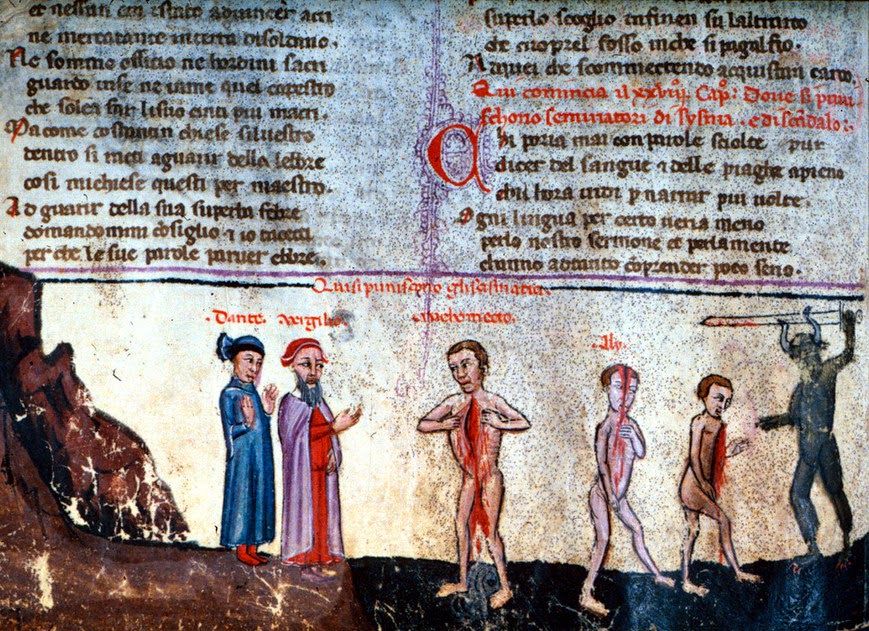 et nessun era stato aduincer acri
ne mercatante interra disoldano.
Ne sommo officio ne hordini sacri
guardo inse ne inme quel capestro
che solea far lisuo cinti piu macri.
Ma come costantin chiese siluestro
dentro si racti aguarir della lebbre
cosi michiese questi per maestro.
Ad guarir della sua superba febre
domandommi cōsiglio et io tacecti
per che le sue parole paruer ebbre.
superlo scoglio infinen su laltrarco
che cuoprel fosso inche si paga lfio.
Aquei che scommectendo acquistan carco.
Qui comincia il xxviij. Cap. Doue si puni
schono seminatori di e di scandalo.
Chi poria mai con parole sciolte pur
dicer del sangue e delle piaghe apieno
chil hora uidi p narrar piu uolte.
Ogni lingua per certo ueria meno
perlo nostro sermone et perlamente
channo adtanto cōprender poco seno.
Qui si puniscono gli scismatici.
Dante. Vergilio. Machomecto.
Aly.